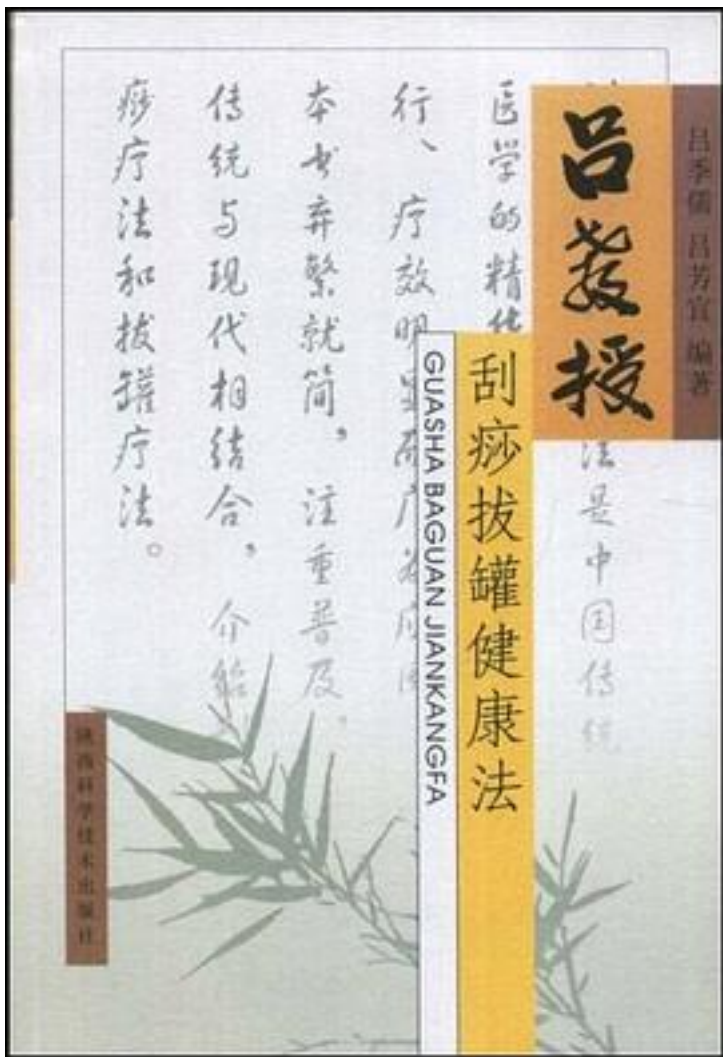 吕季儒 吕芳宜 编著
吕教授
刮痧拔罐健康法
GUASHA BAGUAN JIANKANGFA
法是中国传统
医学的精华
行、疗效明
本书弃繁就简，注重普及。
传统与现代相结合，介绍
痧疗法和拔罐疗法。
陕西科学技术出版社